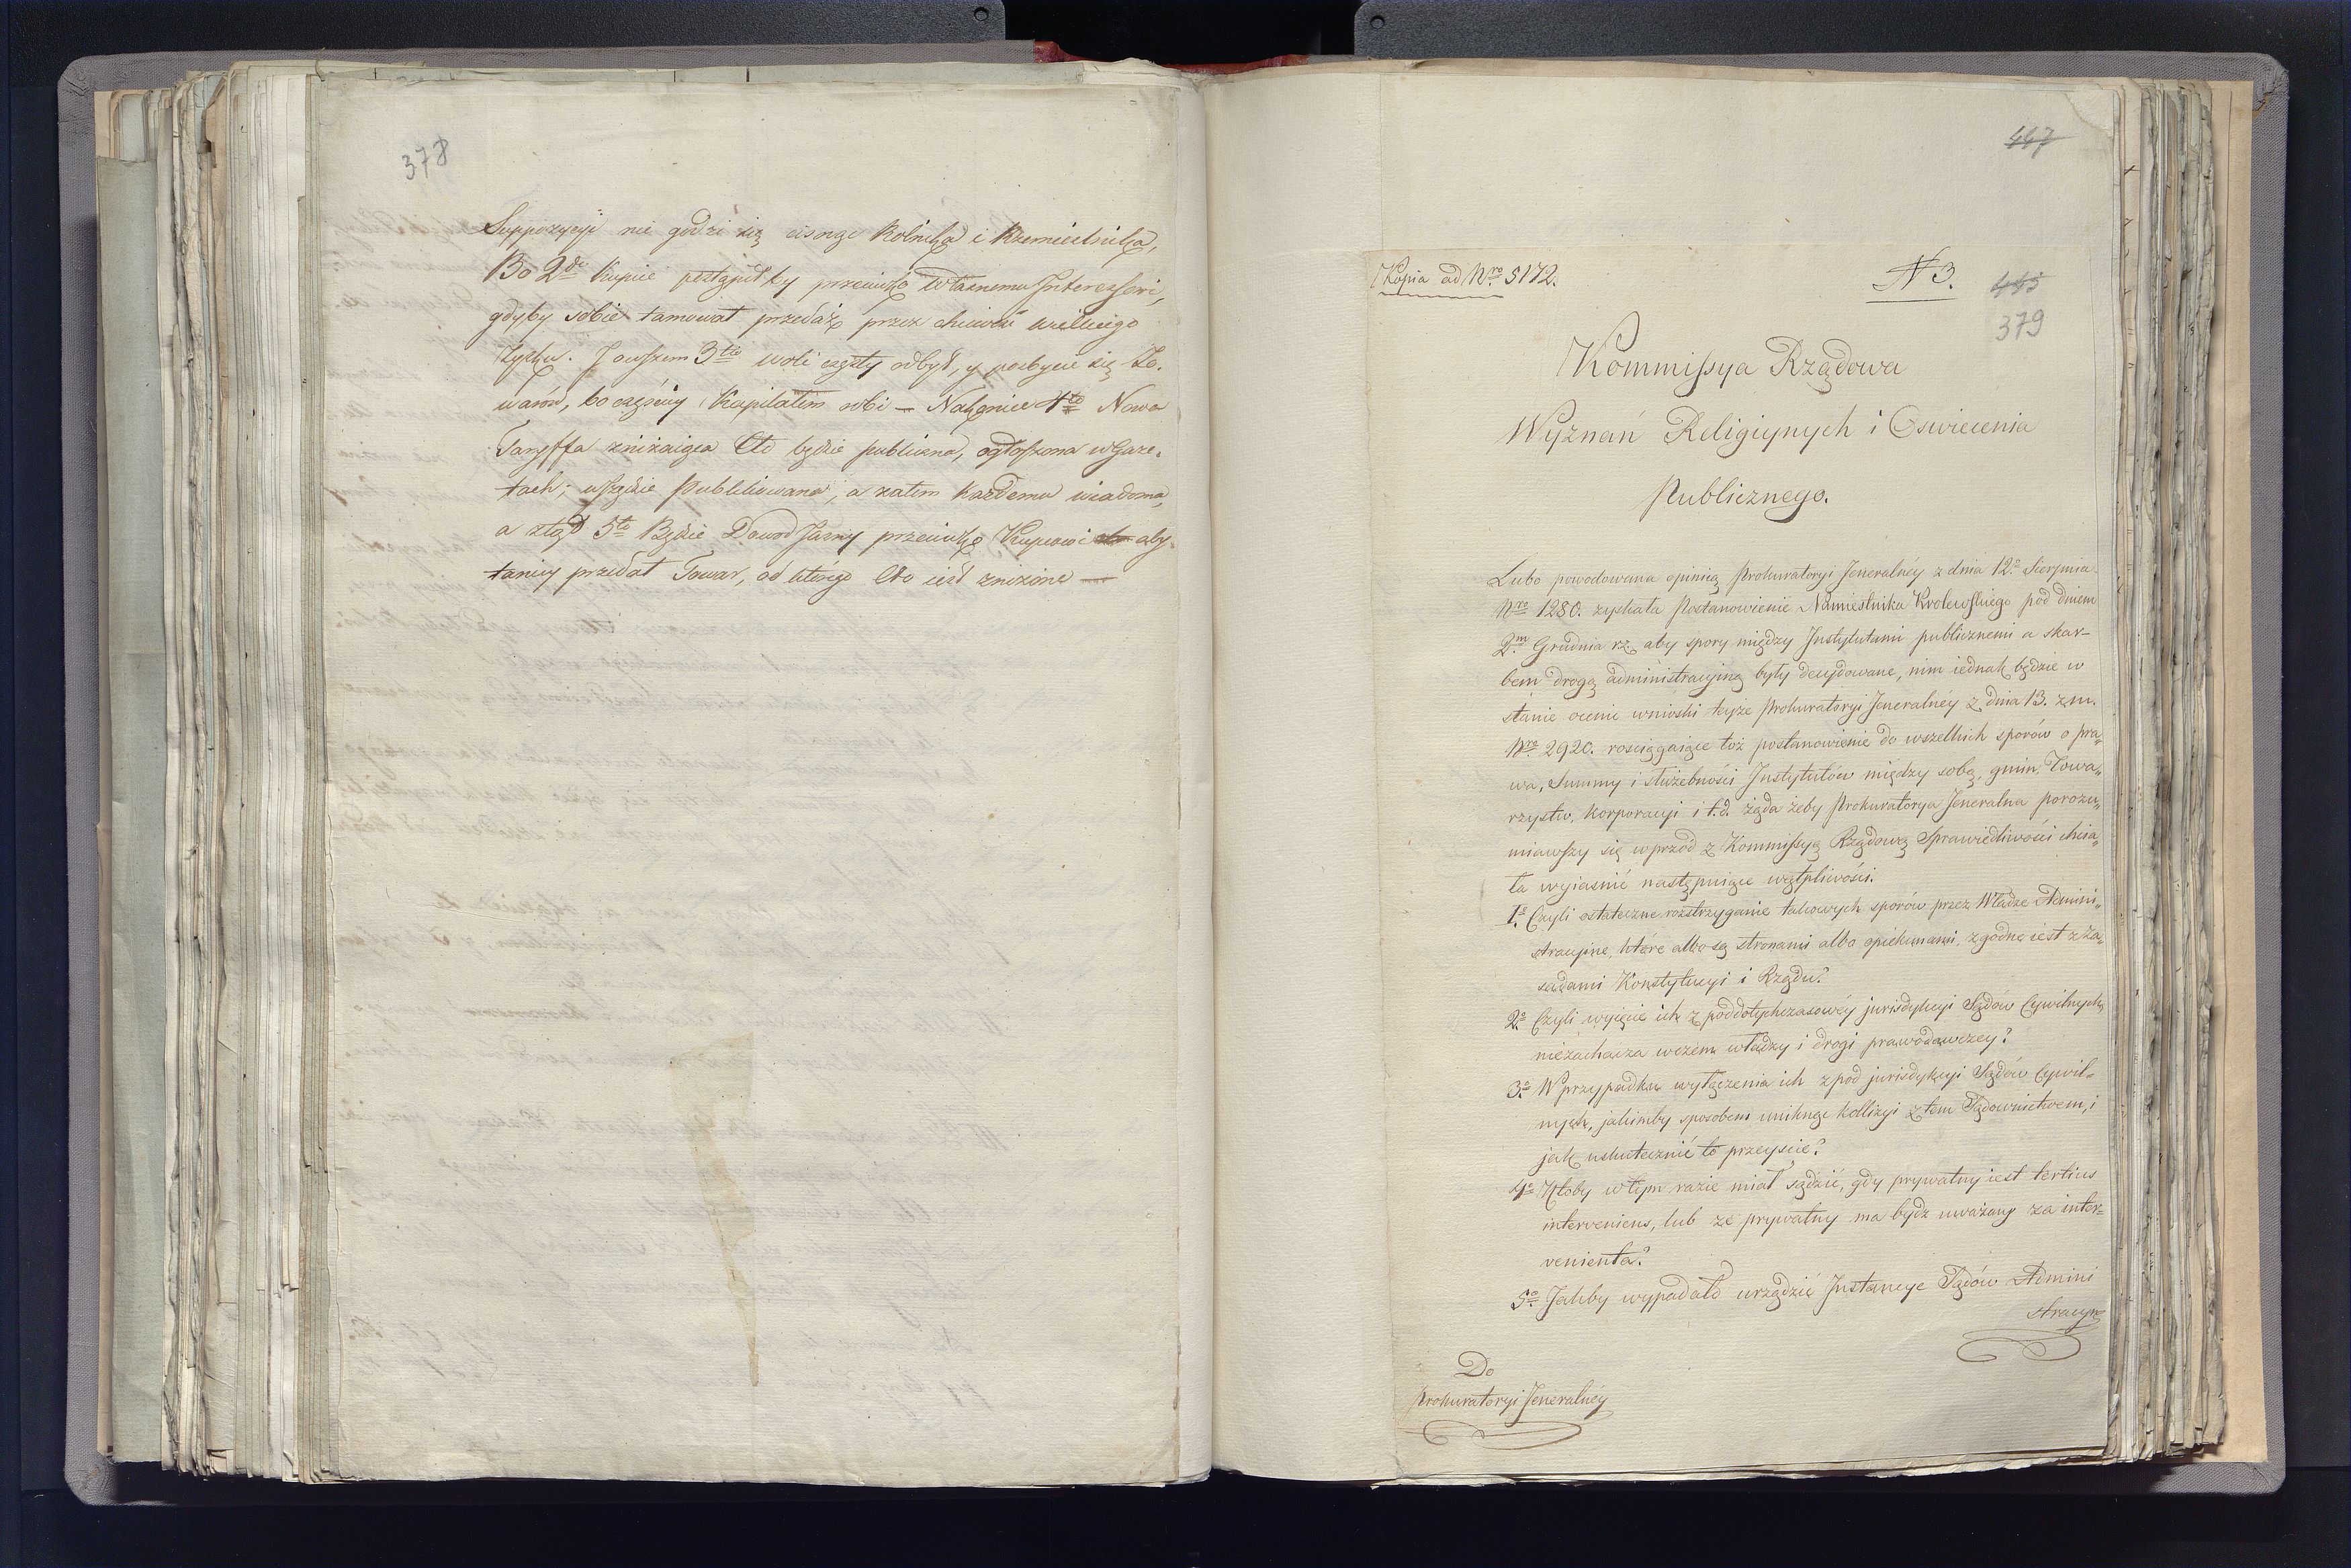 378
Suppozycyi nie godzi się cisnąć Rolnika i Rzemieślnika,
Bo 2do Kupiec postąpiłby przeciwko własnemu Interessowi,
gdyby sobie tamował przedaż przez chciwość wielkiego
Zysku. Jowszem 3tio woli częsty odbyt, y pozbycie się To-
warów, bo
Kapitałem robi — Nakoniec 4to Nowa
Taryffa zniżaiąca Cło będzie publiczna, ogłoszona w Gaze-
tach; wszędzie Publikowana, a zatem każdemu wiadoma,
a ztąd 5to Będzie Dowod Jasny przeciwko Kupcowi aby
taniey przedał Towar, od którego Cło iest zniżone —
447
Kopia ad Nro 5172.
N 3.
445
379
Kommissya Rządowa
Wyznań Religiynych i Oswiecenia
Publicznego.
Lubo powodowana opinią Prokuratoryi Jeneralnéy z dnia 12o Sierpnia
Nro 1280. zyskała Postanowienie Namiestnika Krolewskiego pod dniem
2m Grudnia r.z. aby spory między Instytutami publicznemi a skar-
bem drogą administracyiną były decydowane, nim iednak będzie w
stanie ocenić wnioski teyże Prokuratoryi Jeneralnéy z dnia 13. z.m.
Nro 2920. rosciągaiące toż postanowienie do wszelkich sporów o pra„
wa, Summy i służebności Instytutów między sobą, gmin, Towa„
rzystw, Korporacyi i t.d. żąda żeby Prokuratorya Jeneralna porozu„
miawszy się wprzód z Kommissyą Rządową Sprawiedliwości chcia„
ła wyiasnić następuiące wątpliwości.
1o Czyli ostateczne rozstrzyganie takowych sporów przez Władze Admini„
stracyine, które albo są stronami albo opiekunami, zgodne iest z Za„
sadami Konstytucyi i Rządu?
2o Czyli wyięcie ich z pod dotychczasowéy jurisdykcyi Sądów Cywilnych,
niezachacza wczém władzy i drogi prawodawczey?
3o W przypadku wyłączenia ich z pod jurisdykcyi Sądów Cywil-
nych, jakimby sposobem uniknąć kollizyi z tem Sądownictwem, i
jak uskutecznić to przeyście?
4o Ktoby w tym razie miał sądzić, gdy prywatny iest tertius
interveniens, lub ze prywatny ma bydz uważany za inter-
venienta?
5o Jakby wypadało urządzić Instancye Sądów Admini
stracyn
Do
Prokuratoryi Jeneralnéy